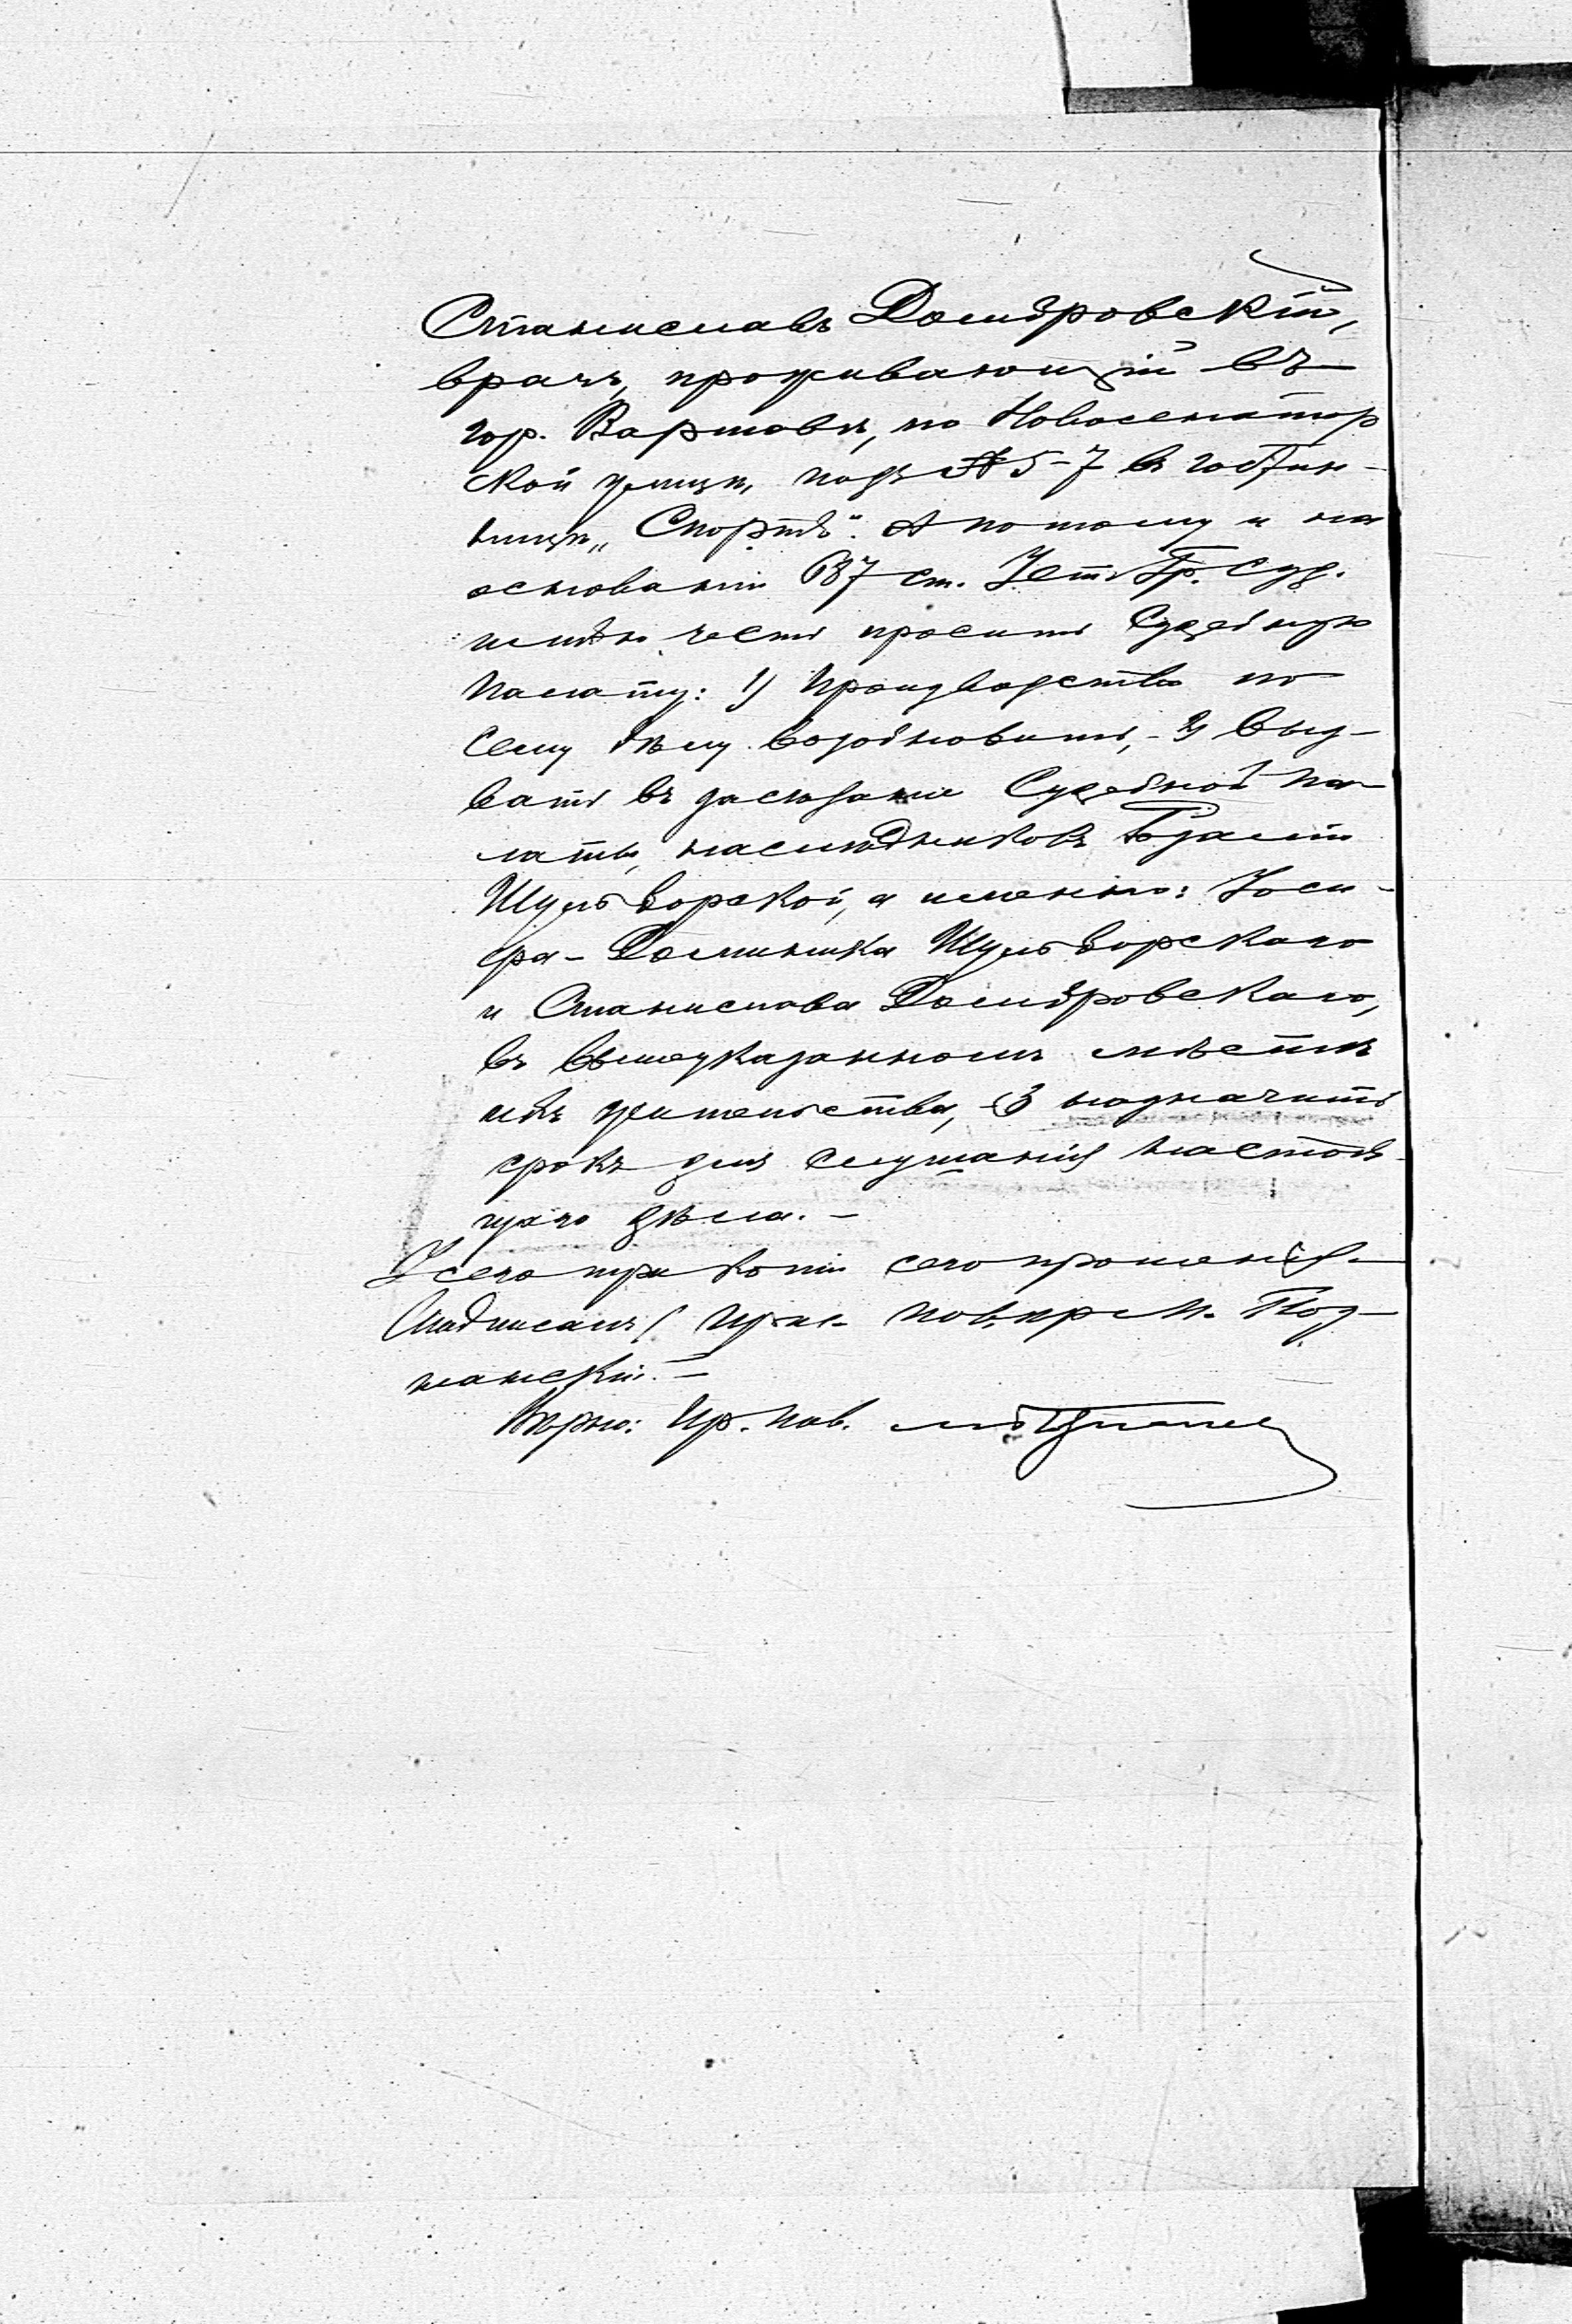 Станиславъ Домбровскій,
врачъ, проживающій въ
гор. Варшавѣ, по Новосенатор
ской улицѣ, подъ № 5-7 въ гостин-
ницѣ „Спортъ“. А потому и на
основаніи 687 ст. Уст. Гр. Суд.
имѣю честь просить Судебную
Палату: 1) Производство по
сему дѣлу возобновить, - 2) Выз-
вать въ засѣданіе Судебной Па-
латы, наслѣдниковъ
Шульборской, а именно: Іоси-
фа - Доминика Шульборскаго
и Станислава Домбровскаго,
въ вышеуказанномъ мѣстѣ
ихъ жительства, 3) назначить
срокъ для слушанія настоя-
щаго дѣла. -
У сего три копіи сего прошенія. -
Подписалъ Прис. пов.
нанскій. -
Вѣрно: Пр. пов.